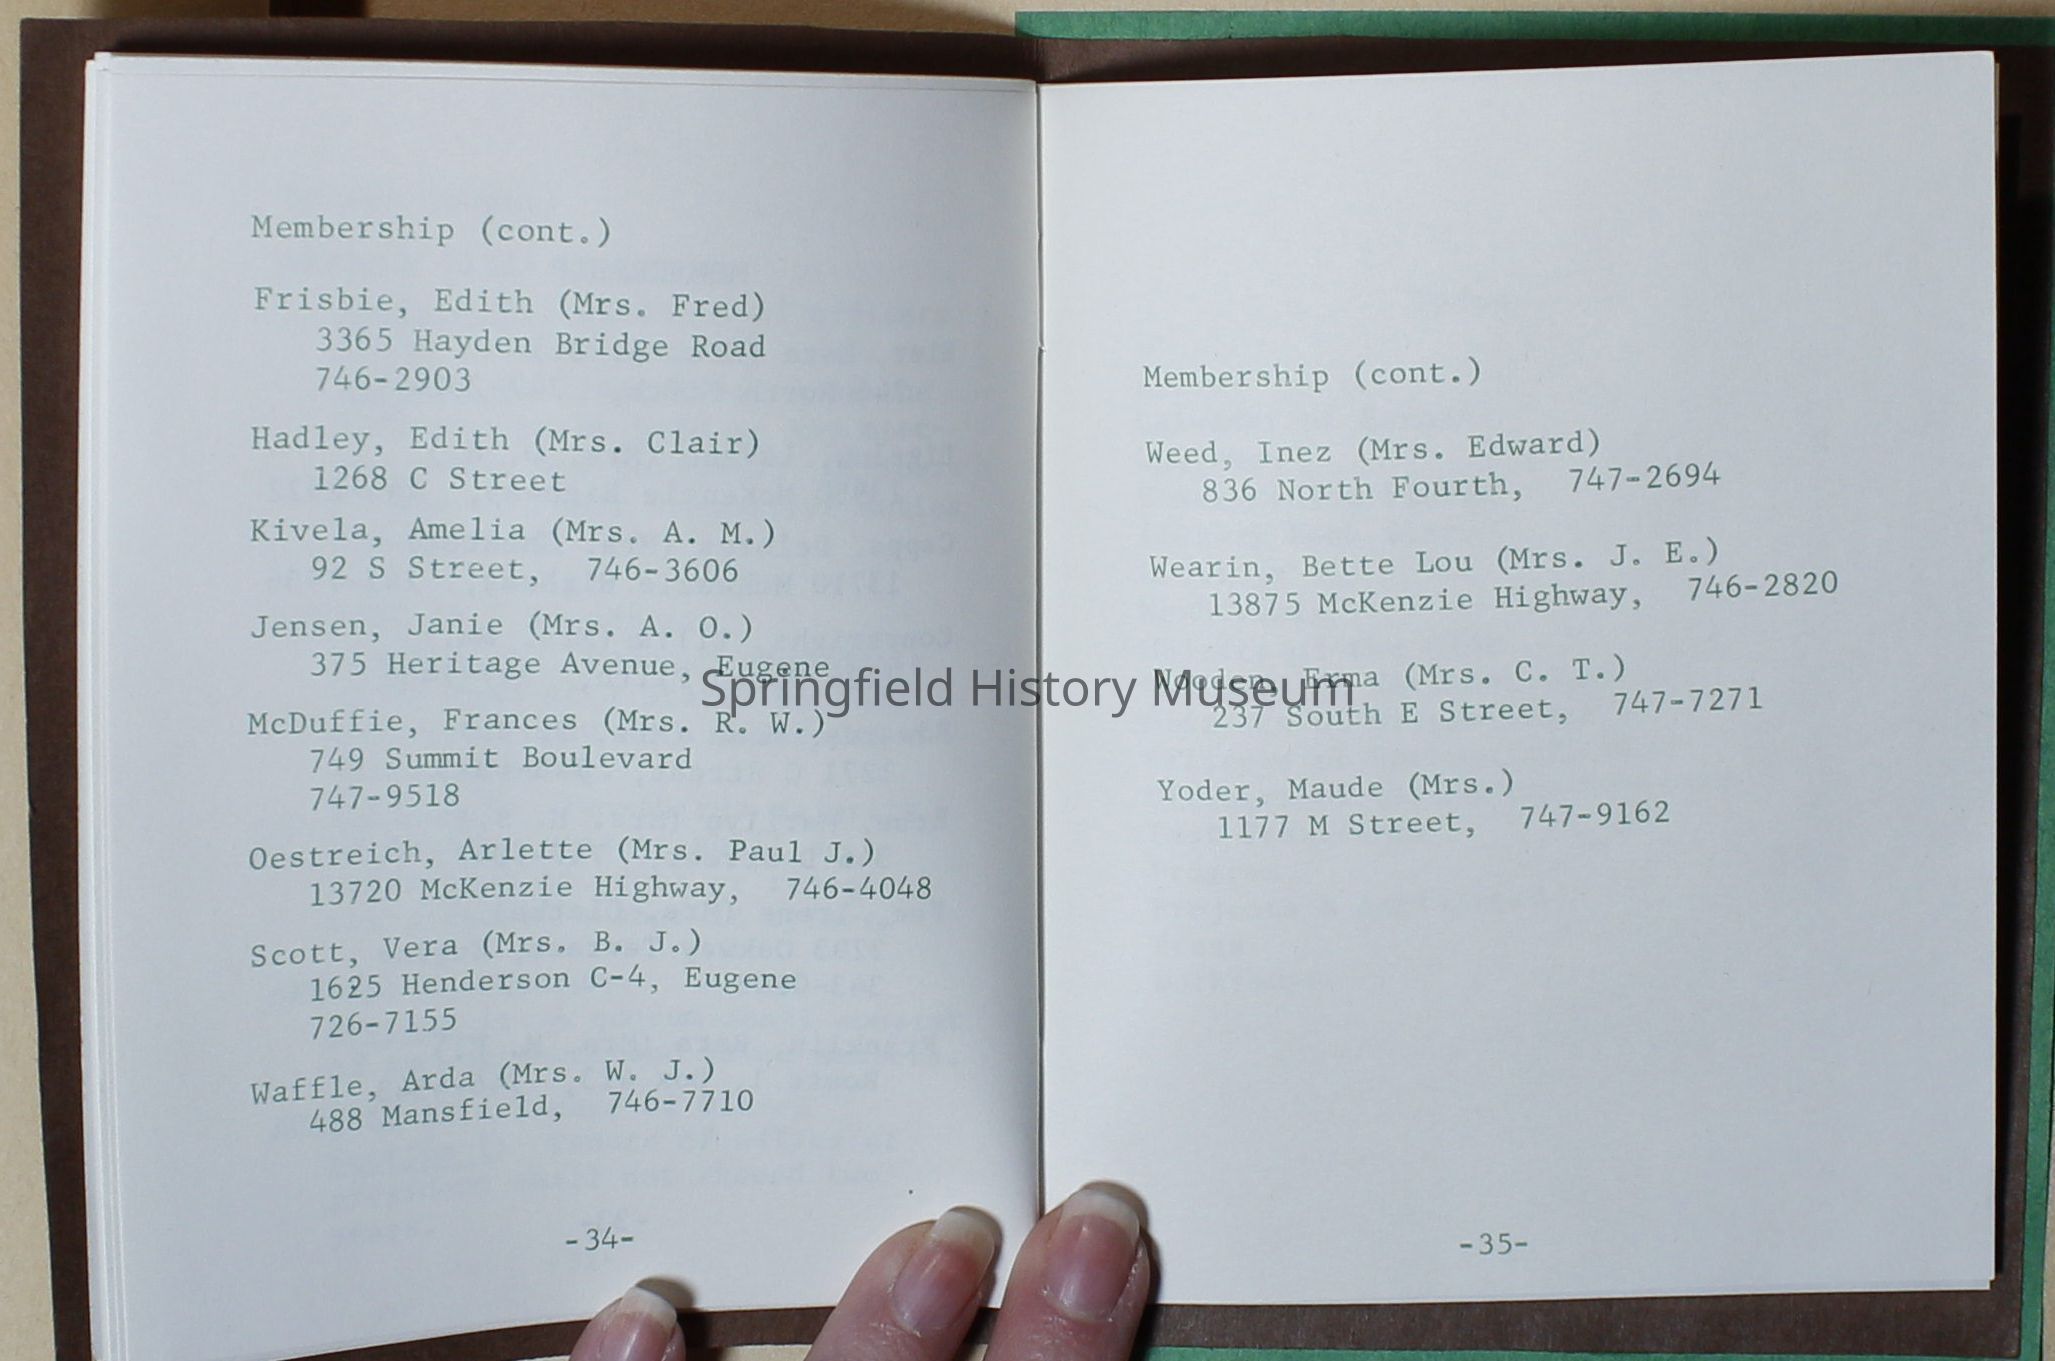 Membership (cont.)
Frisbie, Edith (Mrs. Fred)
3365 Hayden Bridge Road
746-2903
Hadley, Edith (Mrs. Clair)
1268 C Street
Kivela, Amelia (Mrs. A. M.)
92 S Street, 746-3606
Jensen, Janie (Mrs. A. O.)
375 Heritage Avenue, Eugene
McDuffie, Frances (Mrs. R. W.)
749 Summit Boulevard
747-9518
Oestreich, Arlette (Mrs. Paul J.)
13720 McKenzie Highway, 746-4048
Scott, Vera (Mrs. B. J.)
1625 Henderson C-4, Eugene
726-7155
Waffle, Arda (Mrs. W. J.)
488 Mansfield, 746-7710
-34-
Membership (cont.)
Weed, Inez (Mrs. Edward)
836 North Fourth, 747-2694
Wearin, Bette Lou (Mrs. J. E.)
13875 McKenzie Highway, 746-2820
Wooden, Erma (Mrs. C. T.)
237 South E Street, 747-7271
Yoder, Maude (Mrs.)
1177 M Street, 747-9162
-35-
Springfield History Museum